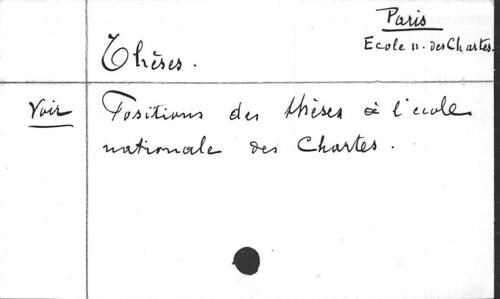 Paris
Ecole n. des Chartes.
Thèses.
Voir
Positions des thèses à l'école
nationale des Chartes.